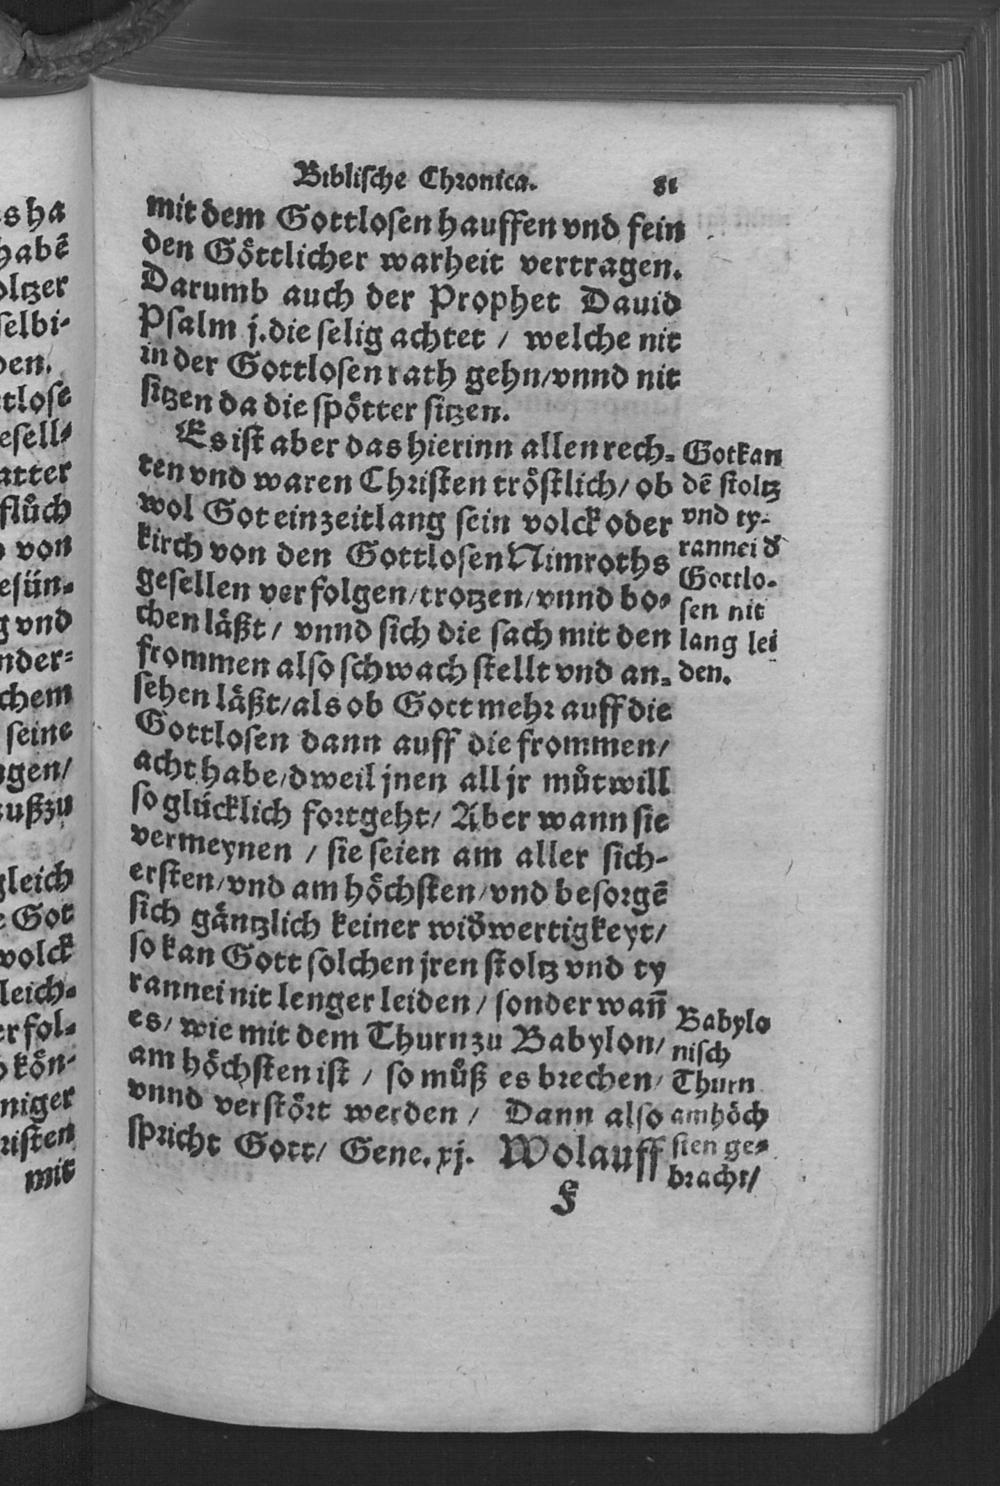 s ha
habē
oltzer
selbi-
den.
tlose
esell-
atter
flůch
von
esün-
g vnd
nder-
chem
seine
ngen/
ußzu
gleich
e Got
volck
leich-
erfol-
kön-
niger
risten
mit
Biblische Chronica. 81
mit dem Gottlosen hauffen vnd fein
den Göttlicher warheit vertragen.
Darumb auch der Prophet Dauid
Psalm j. die selig achtet / welche nit
in der Gottlosen rath gehn/vnnd nit
sitzen da die spötter sitzen.
Es ist aber das hierinn allen rech-
ten vnd waren Christen tröstlich/ ob
wol Got ein zeitlang sein volck oder
kirch von den Gottlosen Nimroths
gesellen verfolgen/trotzen/vnnd bo-
chen läßt/ vnnd sich die sach mit den
frommen also schwach stellt vnd an-
sehen läßt/als ob Gott mehr auff die
Gottlosen dann auff die frommen/
acht habe/dweil jnen all jr můtwill
so glücklich fortgeht/ Aber wann sie
vermeynen / sie seien am aller sich-
ersten/vnd am höchsten/vnd besorgē
sich gäntzlich keiner widwertigkeyt/
so kan Gott solchen jren stoltz vnd ty
rannei nit lenger leiden / sonder wañ
es/ wie mit dem Thurn zu Babylon/
am höchsten ist / so můß es brechen/
vnnd verstört werden / Dann also
spricht Gott/ Gene. xj. Wolauff
F
Got kan
dē stoltz
vnd ty-
rannei d
Gottlo-
sen nit
lang lei
den.
Babylo
nisch
Thurn
am höch
sten ge-
bracht/